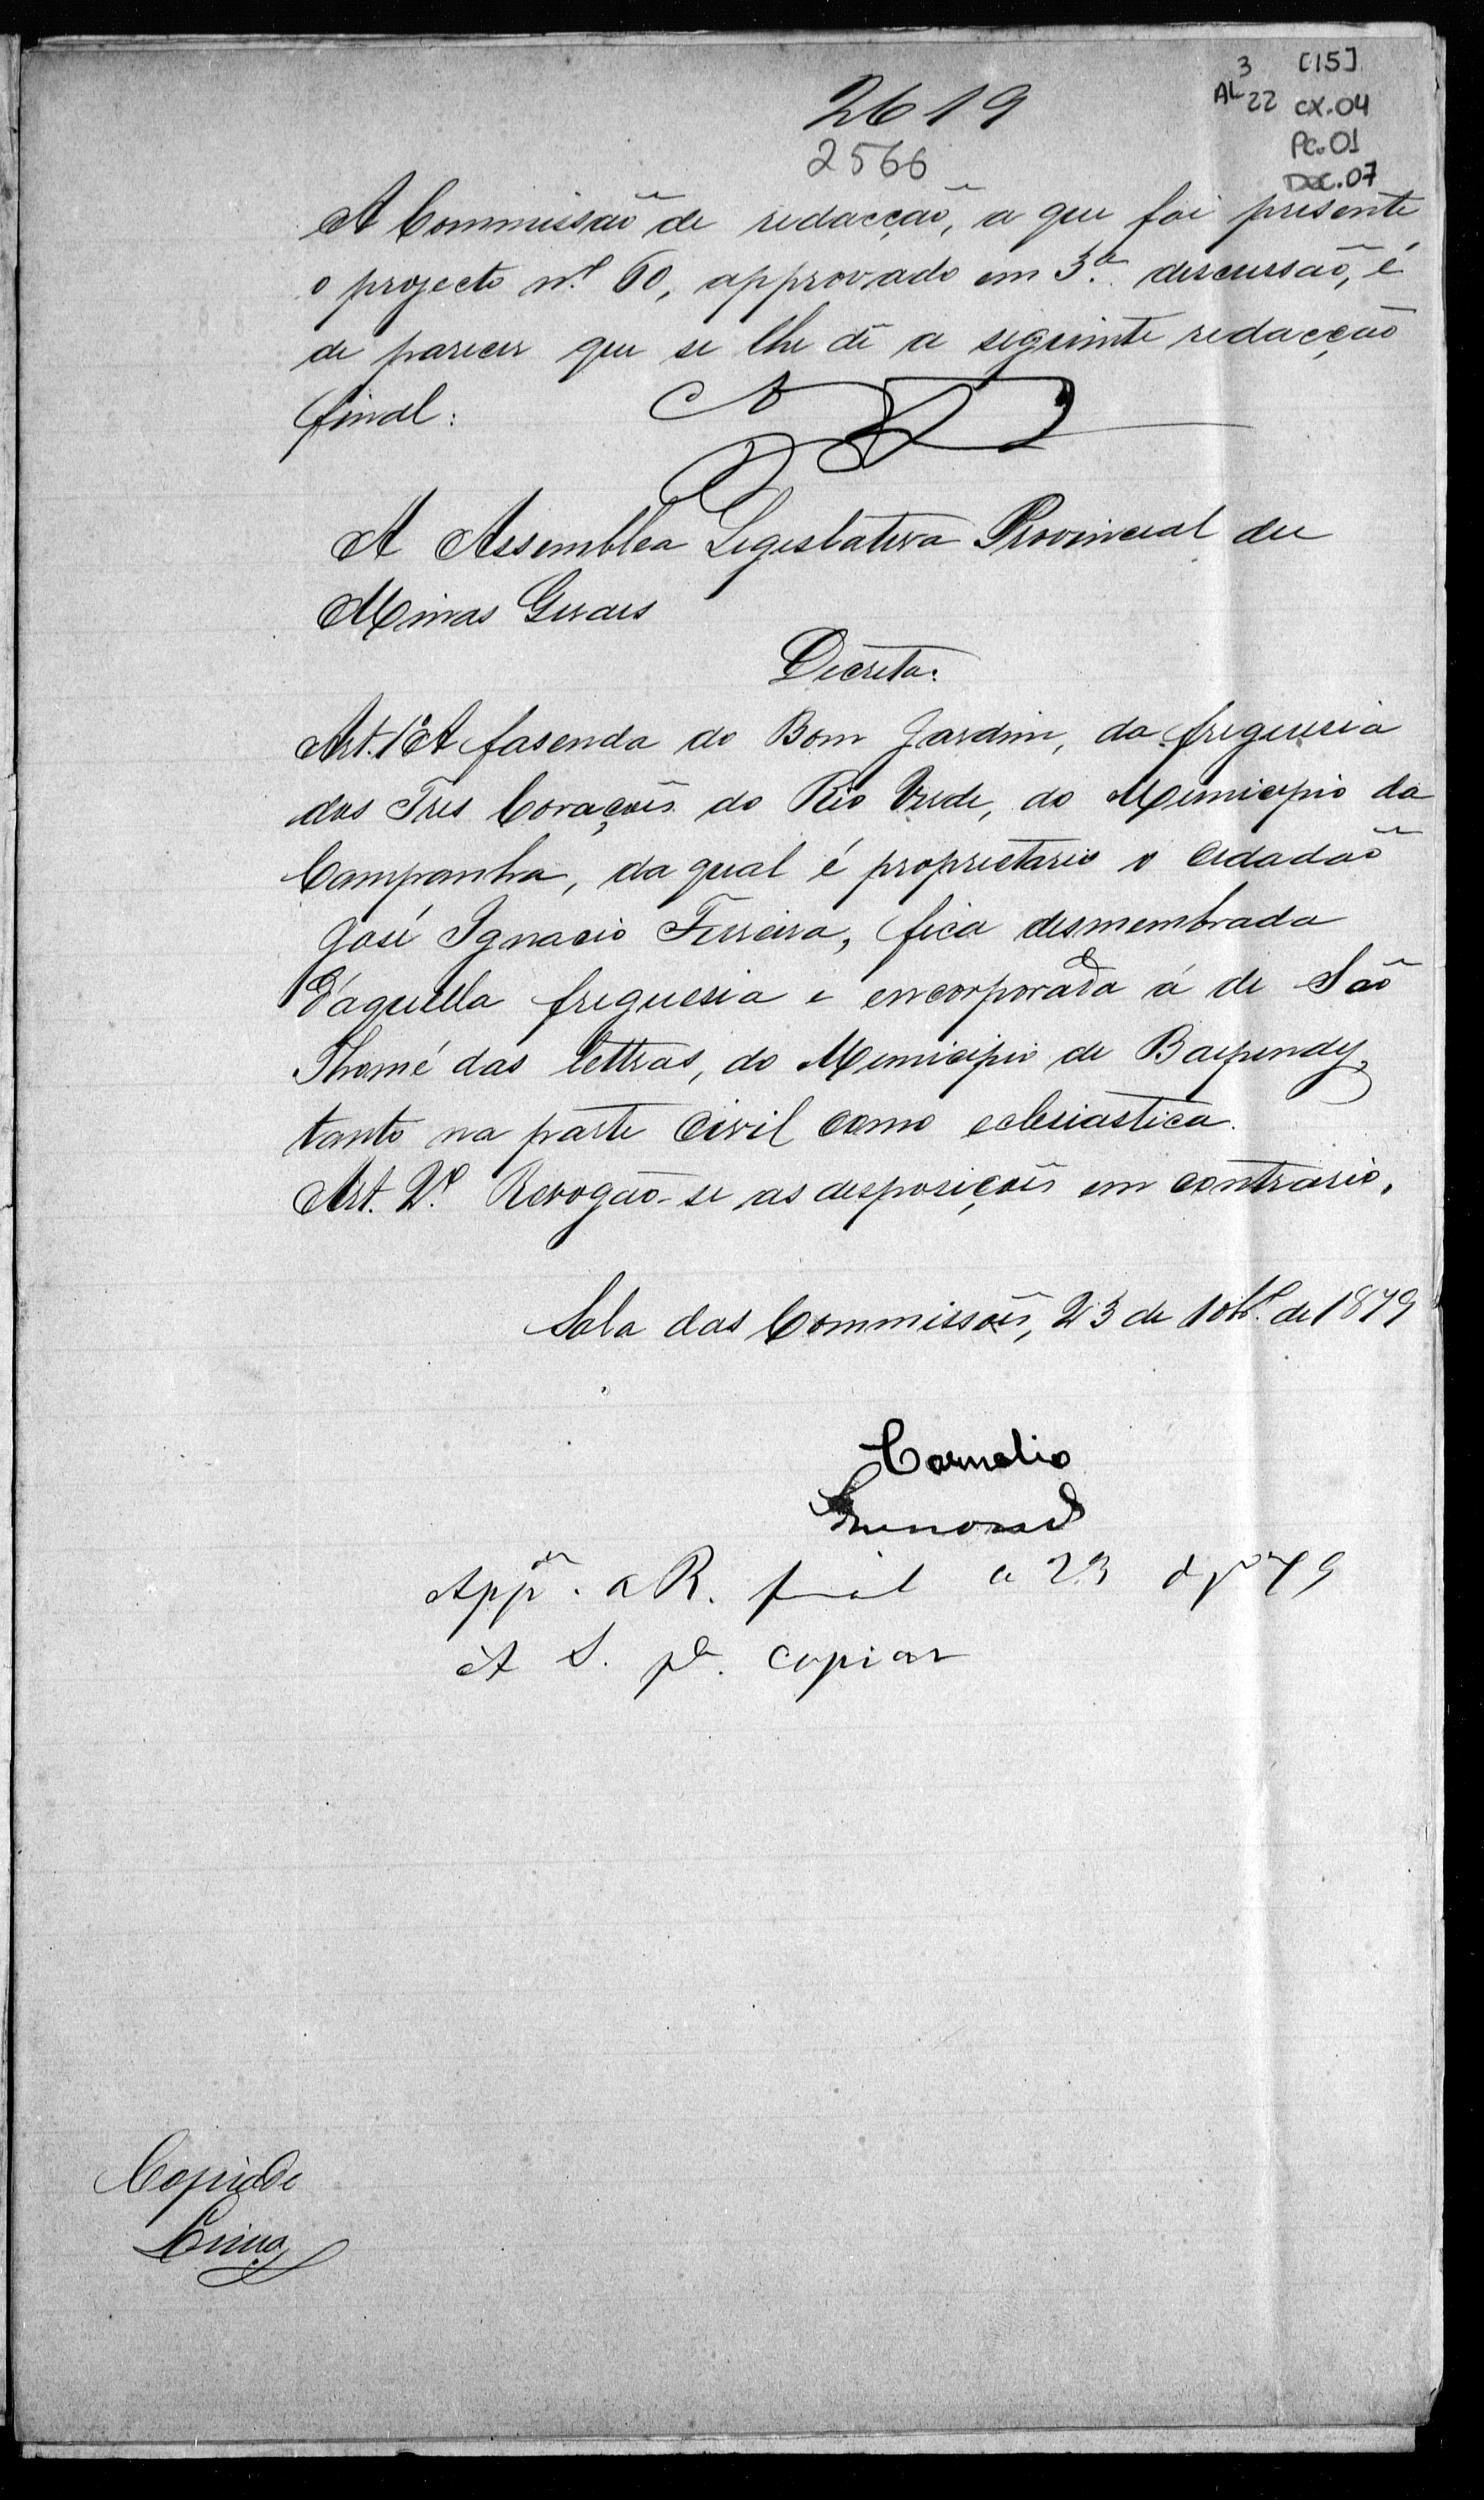 3 [15]
AL 22 CX.04
PC.01
DOC.07
2619
2566
A Commissão de redacção, a que foi presente
o projecto nº 60, approvado em 3ª discussão, é
de parecer que se lhe dê a seguinte redacção
final:
A Assemblea Legislativa Provincial de
Minas Geraes
Decreta:
Art. 1º A fasenda do Bom Jardim, da freguesia
dos Tres Corações do Rio Verde, do Municipio da
Campanha, da qual é proprietario o cidadão
José Ignacio Ferreira, fica desmembrada
d'aquella freguesia e encorporada á de São
Thomé das Lettras, do Municipio de Baependy,
tanto na parte civil como eclesiastica.
Art. 2º Revogão-se as desposições em contrario.
Sala das Commissões, 23 de 10bro. de 1879
Cornelio
App.da a R. final a 23 79
A S. pa. copiar
Copiado
Lima